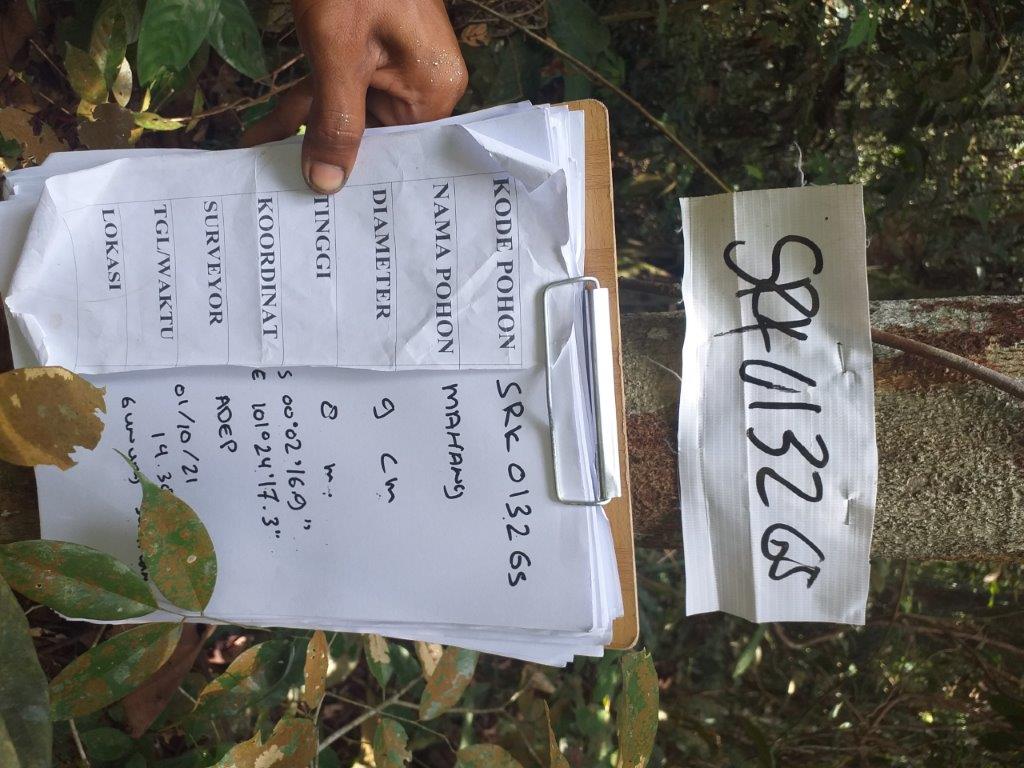 KODE POHON SRK 0132 GS
NAMA POHON MAHANG
DIAMETER 9 cm
TINGGI 8 m.
KOORDINAT S 00°.02'.169"
E 101°24'.17.3".
SURVEYOR ADEP
TGL/WAKTU 01/10/21
14.30
LOKASI
SRK 0132 GS